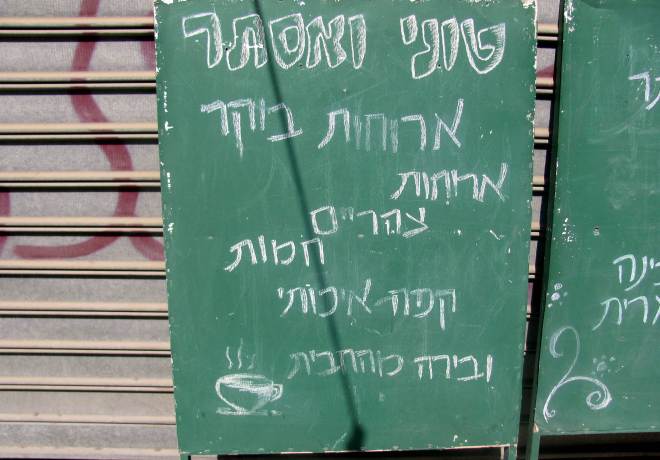 טוני ואסתר
ארוחות בוקר
ארוחות
צהריים
חמות
קפה איכותי
ובירה מהחבית